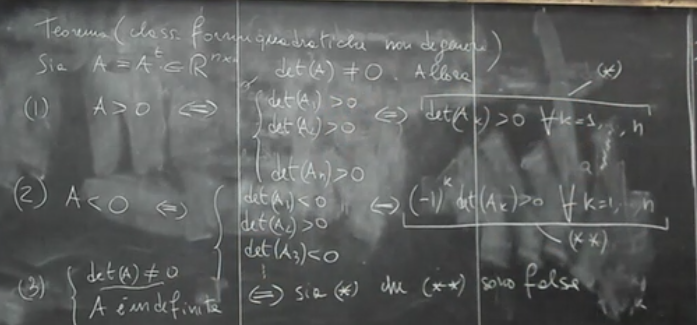 Teorema (class. forme quadratiche non degeneri)
Sia A = A^t ∈ R^{n×n} det(A) ≠ 0. Allora
(*)
(1) A > 0 ⇔ { det(A₁) > 0 ⇔ det(A_k) > 0 ∀ k=1,..., n
det(A₂) > 0
det(A_n) > 0
(2) A < 0 ⇔ { det(A₁) < 0 ⇔ (-1)^k det(A_k) > 0 ∀ k=1,..., n
det(A₂) > 0
(**)
det(A₃) < 0
(3) { det(A) ≠ 0
A è indefinita ⇔ sia (*) che (**) sono false